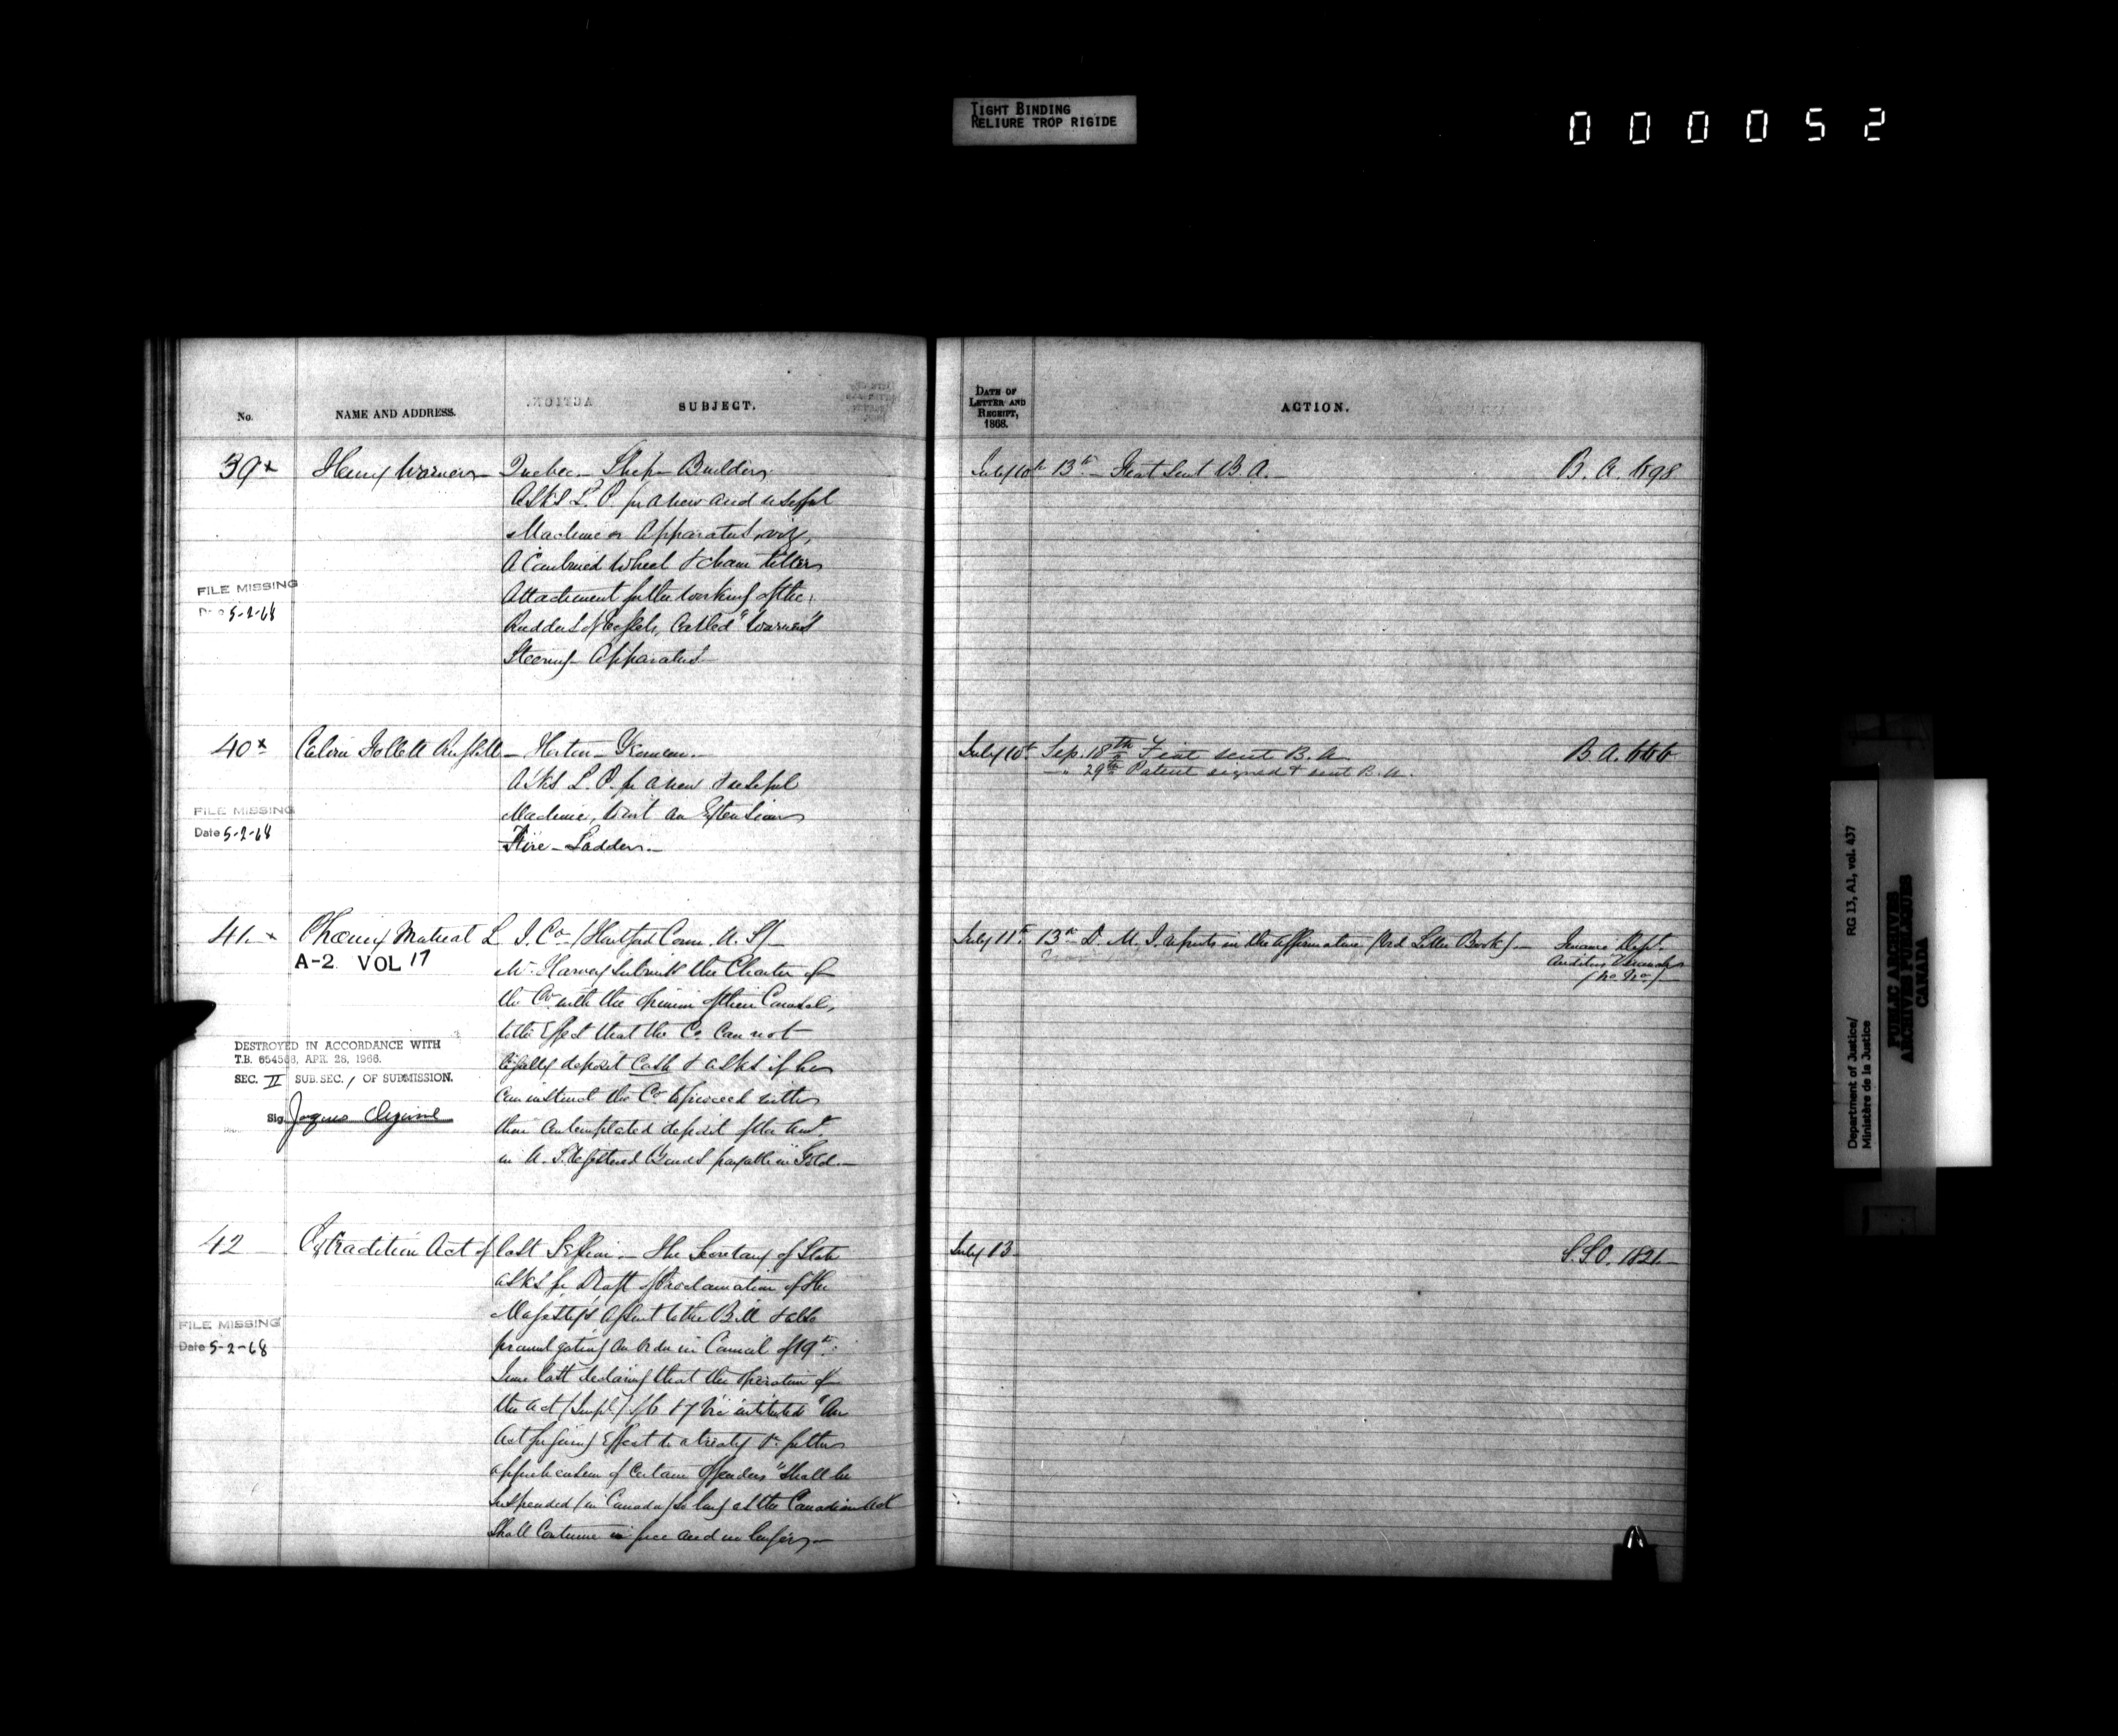 TIGHT BINDING
RELIURE TROP RIGIDE
000052
No.
NAME AND ADDRESS.
SUBJECT.
39 x
Henry Warner
Quebec Ship Builder
Asks L. P. for a new and useful
Machine or Apparatus, viz,
A Combined Wheel & chain tiller
Attachment for the working of the
Rudders of Vessels, Called "Warner's
Steering Apparatus
FILE MISSING
5-2-68
40 x
Calvin Follett
Horton Yeoman
Asks L. P. for a new & useful
Machine, to wit an Extension
Fire-Ladder.
FILE MISSING
Date 5-2-68
41. x
Phœnix Mutual L. I. Co. (Hartford Conn. U.S.)
A-2 VOL 17
Mr. Harvey Submits the Charter of
the Co. with the opinion of their Counsel,
to the Effect that the Co. Can not
legally deposit Cash & asks if he
Can instruct the Co. to proceed with
their Contemplated deposit of the Amt.
in U. S. Registered Bonds payable in Gold.
DESTROYED IN ACCORDANCE WITH
T.B. 654588, APR. 28, 1966.
SEC. II SUB.SEC. 1 OF SUBMISSION.
Sig.
42
Extradition Act of last Session. The Secretary of State
asks for Draft of Proclamation of Her
Majesty's Assent to the Bill & also
promulgating An Order in Council of 19th
June last declaring that the Operation of
the Act (Impl.) 6 & 7 Vic intituled "An
Act for giving Effect to a treaty &c for the
apprehension of Certain Offenders" Shall be
suspended (in Canada) so long as the Canadian Act
Shall Continue in force and no longer.
FILE MISSING
Date 5-2-68
DATE OF
LETTER AND
RECEIPT,
1868.
ACTION.
July 10th 13th Fiat Sent B. A. B. A. 698
July 10th Sep. 18th Fiat sent B. A. B. A. 666
" 29th Patent signed & sent B. A.
July 11th 13th D. M. J. reports in the affirmative (Vid Letter Book) Finance Dept.
(No No.)
July 13 S.S.O. 1821
RG 13, A1, vol. 437
Department of Justice/
Ministère de la Justice
PUBLIC ARCHIVES
ARCHIVES PUBLIQUES
CANADA